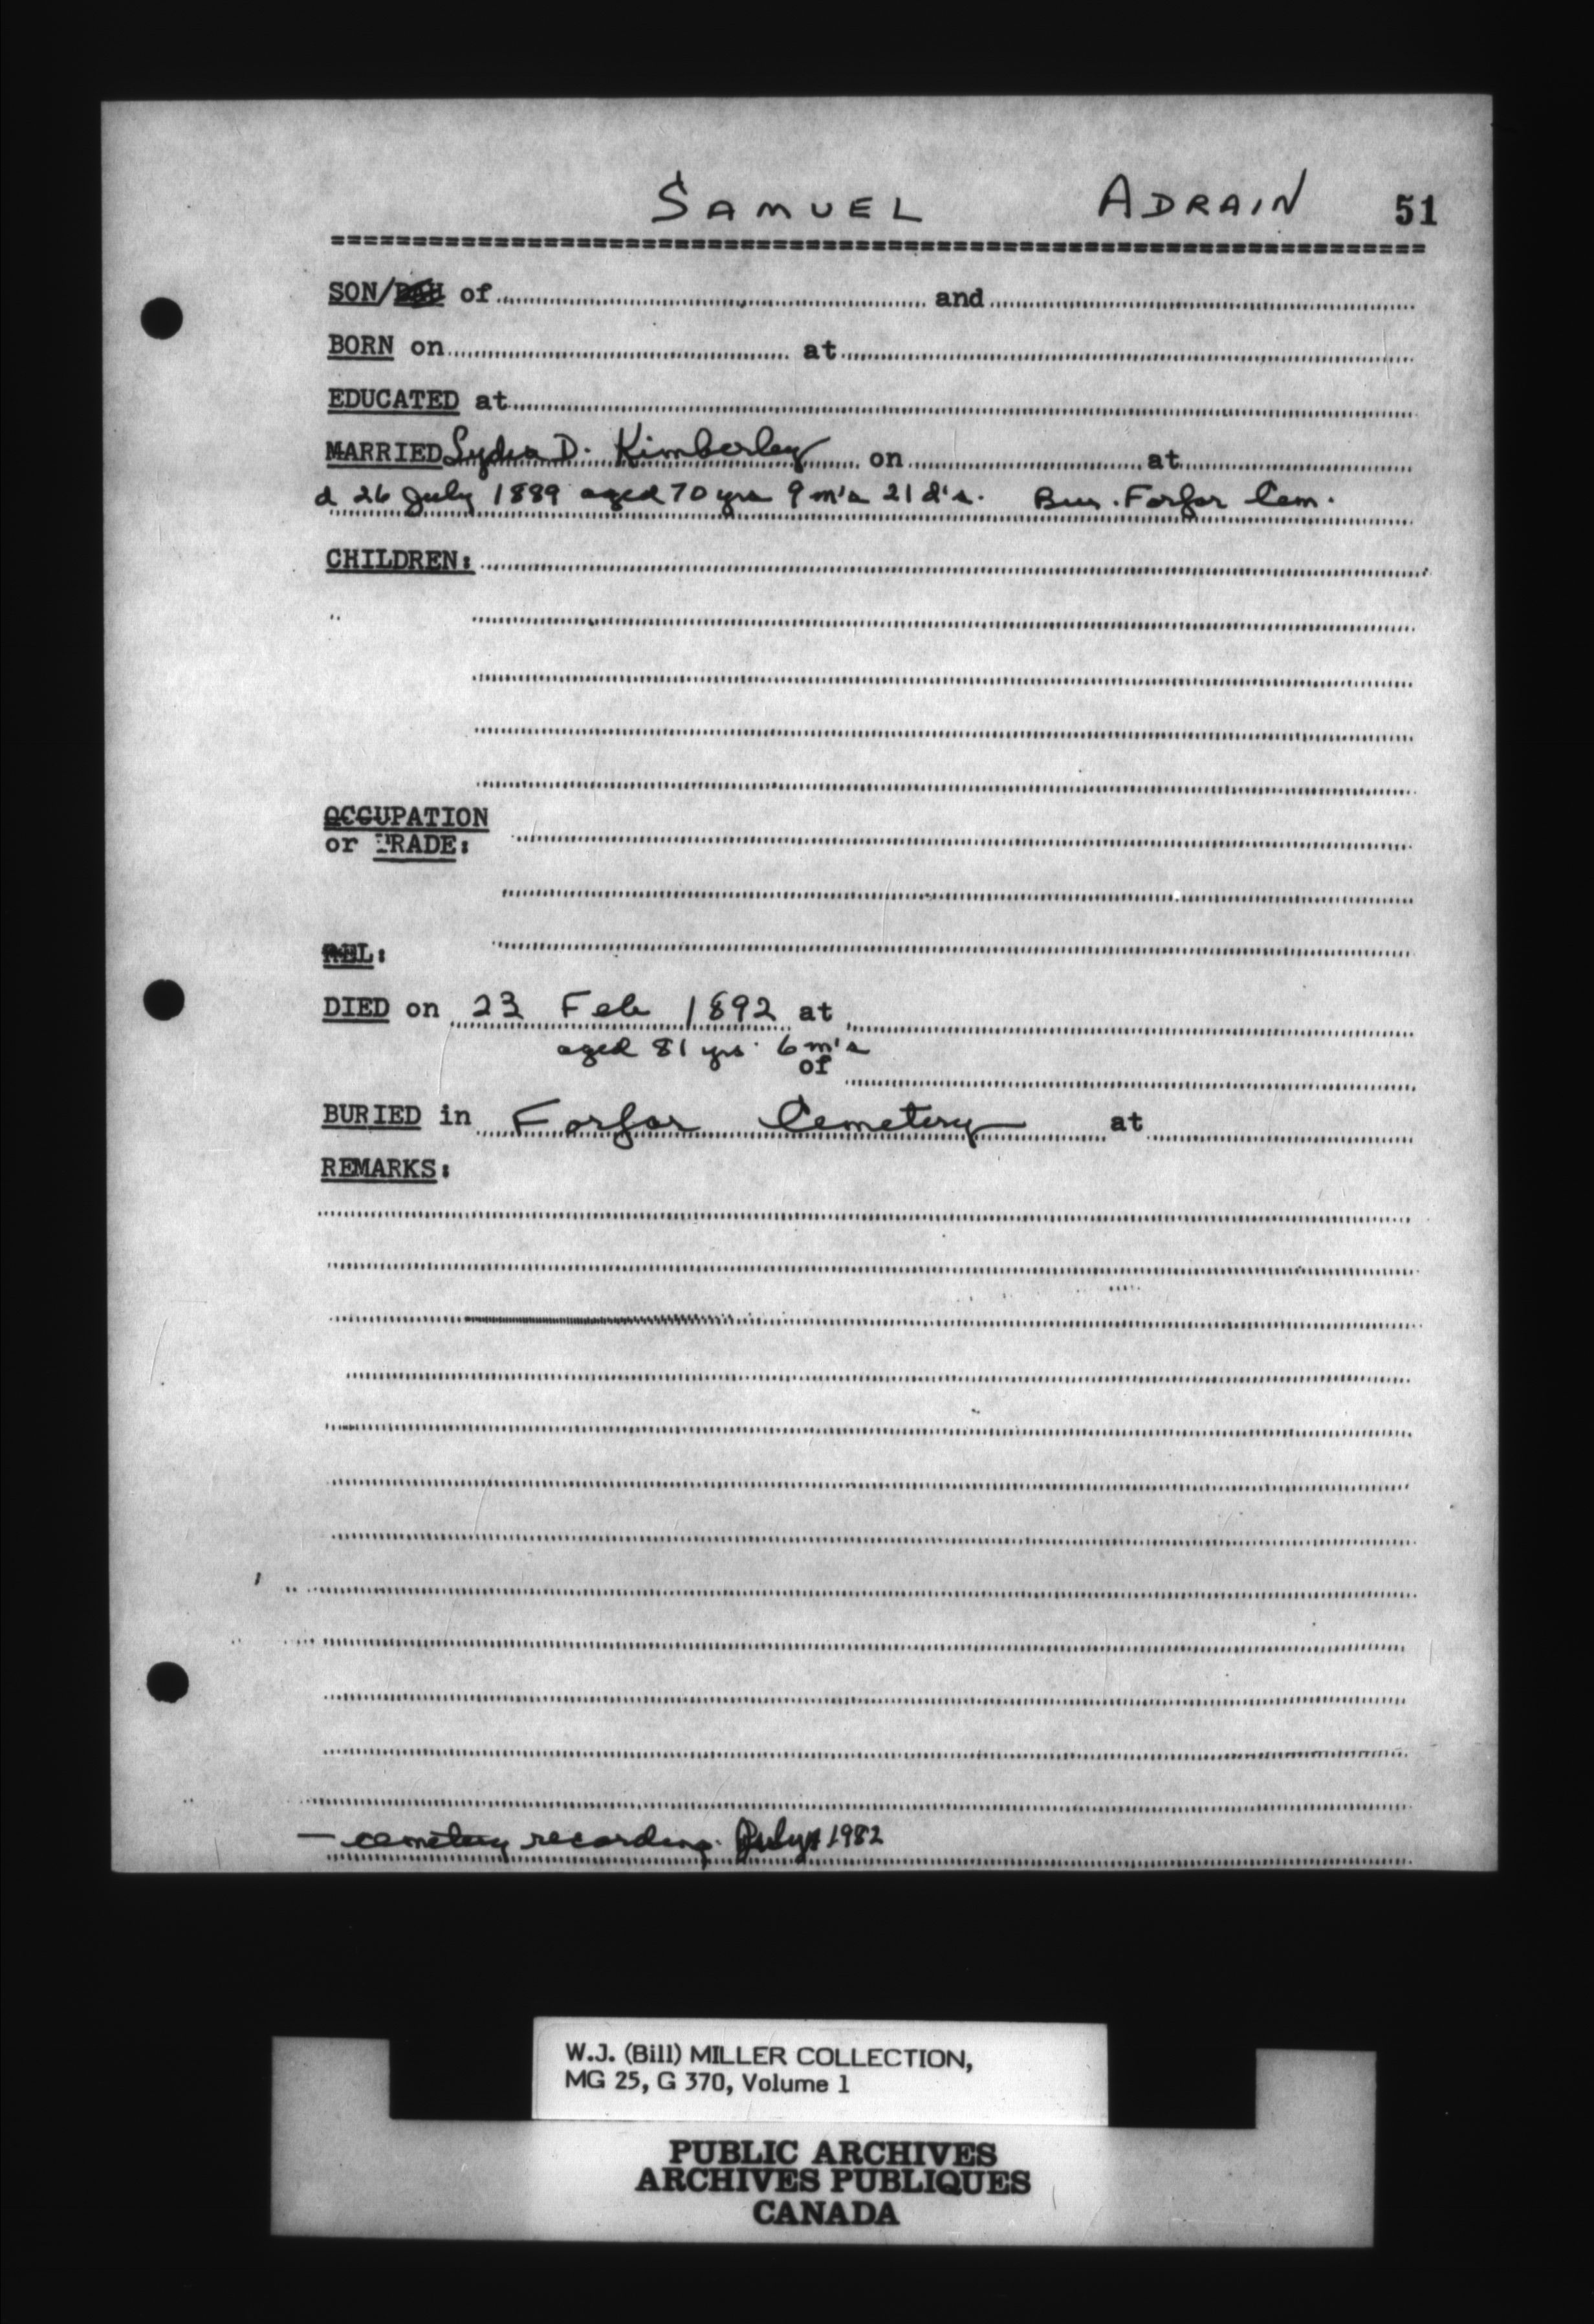 SAMUEL ADRAIN 51
SON/DAU of and
BORN on at
EDUCATED at
MARRIED Lydia D. Kimberley on at
d 26 July 1889 aged 70 yrs 9 m's 21 d's. Bur. Forfar Cem.
CHILDREN:
OCCUPATION
or TRADE:
REL:
DIED on 23 Feb 1892 at
aged 81 yrs. 6 m's
of
BURIED in Forfar Cemetery at
REMARKS:
— cemetery recording. July 1982
W.J. (Bill) MILLER COLLECTION,
MG 25, G 370, Volume 1
PUBLIC ARCHIVES
ARCHIVES PUBLIQUES
CANADA